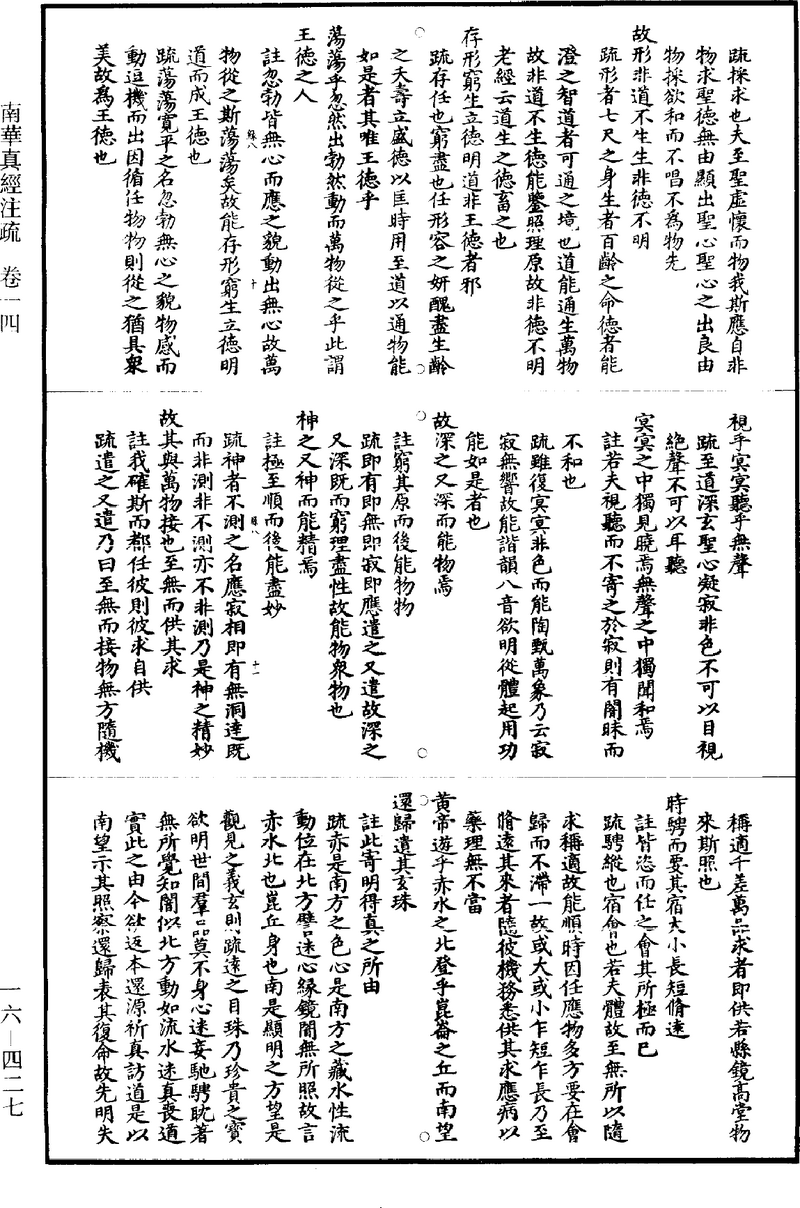 南華真經注疏　卷一四
一六—四二七
疏採求也夫至聖虛懷而物我斯應自非
物求聖德無由顯出聖心聖心之出良由
物採欲和而不唱不為物先
故形非道不生生非德不明
疏形者七尺之身生者百齡之命德者能
澄之智道者可通之境也道能通生萬物
故非道不生德能鑒照理原故非德不明
老經云道生之德畜之也
存形窮生立德明道非王德者邪
疏存任也窮盡也任形容之妍醜盡生齡
之夭壽立盛德以匡時用至道以通物能
如是者其唯王德乎
蕩蕩乎忽然出勃然動而萬物從之乎此謂
王德之人
註忽勃皆無心而應之貌動出無心故萬
物從之斯蕩蕩矣故能存形窮生立德明
道而成王德也
疏蕩蕩寬平之名忽勃無心之貌物感而
動逗機而出因循任物物則從之猶具衆
美故為王德也
十
視乎冥冥聽乎無聲
疏至道深玄聖心凝寂非色不可以目視
絕聲不可以耳聽
冥冥之中獨見曉焉無聲之中獨聞和焉
註若夫視聽而不寄之於寂則有闇昧而
不和也
疏雖復冥冥非色而能陶甄萬象乃云寂
寂無響故能諧韻八音欲明從體起用功
能如是者也
故深之又深而能物焉
註窮其原而後能物物
疏即有即無即寂即應遣之又遣故深之
又深既而窮理盡性故能物衆物也
神之又神而能精焉
註極至順而後能盡妙
疏神者不測之名應寂相即有無洞達既
而非測非不測亦不非測乃是神之精妙
故其與萬物接也至無而供其求
註我確斯而都任彼則彼求自供
疏遣之又遣乃曰至無而接物無方隨機
十一
稱適千差萬品求者即供若縣鏡高堂物
來斯照也
時騁而要其宿大小長短脩遠
註皆恣而任之會其所極而已
疏騁縱也宿會也若夫體故至無所以隨
求稱適故能順時因任應物多方要在會
歸而不滯一故或大或小乍短乍長乃至
脩遠其來者隨彼機務悉供其求應病以
藥理無不當
黃帝遊乎赤水之北登乎崑崙之丘而南望
還歸遺其玄珠
註此寄明得真之所由
疏赤是南方之色心是南方之藏水性流
動位在北方譬迷心緣鏡闇無所照故言
赤水北也崑丘身也南是顯明之方望是
觀見之義玄則疏遠之目珠乃珍貴之寶
欲明世間羣品莫不身心迷妄馳騁耽著
無所覺知闇似北方動如流水迷真喪道
實此之由今欲返本還源祈真訪道是以
南望示其照察還歸表其復命故先明失